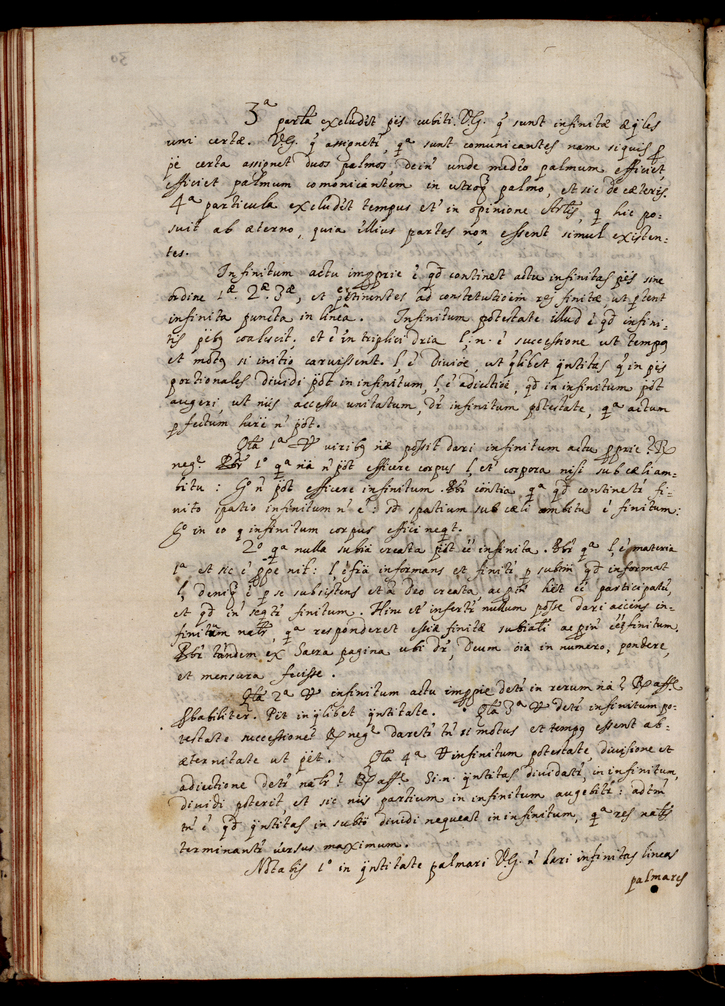 3ª parta excludit pẽs cubiti. V.G. q̃ sunt infinitæ æq̃les
uni certæ. V.G. q̃ assignetr, qª sunt comunicantes nam siquis p
pẽ certa assignet duos palmos, dein unde medio palmum efficiet,
efficiet palmum comonicantem in utroq palmo, et sic de cæteris.
4ª particula excludit tempus et in opinione Artis, q hic po-
suit ab æterno, quia illius partes non essent simul existen-
tes.
Infinitum actu imprie ẽ qd continet actu infinitas pẽs sine
ordine 1æ. 2æ. 3æ, et ptinentes ad constetutioem rei finitæ ut sunt
infinita puncta in linea. Infinitum potestate illud ẽ qd infini-
tis pẽbq coalescit. et ẽ in triplici dria l. n. ẽ successione ut tempq
et motq si initio caruissent. l ẽ divioẽ, ut q̃libet q̃ntitas q in pẽs
portionales dividi põt in infinitum, l ẽ adiectioẽ, qd in infinitum põt
augeri ut nus accessu unitatum, dr infinitum potestate, qª actum
pfectum hẽre ñ põt.
Qta 1ª V viribq næ possit dari infinitum actu pprie? R
negᵉ. Pbr 1º qª nã ñ põt efficere corpus l et corpora nisi sub cæli am-
bitu: Gº ñ põt efficere infinitum. Pbr cõntia, qª qd continetr fi-
nito spatio infinitum ñ ẽ: sd spatium sub cæli ambitu ẽ finitum:
Gº in eo q infinitum corpus effici neqt.
2º qª nulla subia creata põt ẽe infinita. Pbr qª l ẽ materia
1ª et sic ẽ ppe nil: l ẽ fra informans et finitr p subm qd informat
l deniq ẽ p se subsistens et a Deo creata, ac pin hẽt ẽe participatũ,
et qd in segtr finitum. Hinc et infertr nullum posse dari accẽns in-
finitum natr, qª responderet essiæ finitæ subiali ac pin ẽet finitum.
Pbr tandem ex Sacra pagina ubi dr, Deum oia in numero, pondere,
et mensura fecisse.
Qta 2ª V infinitum actu imppie detr in rerum nã? R affᵉ.
Pbabiliter. Fit in q̃libet q̃ntitate. Qta 3ª V detr infinitum po-
testate successione? R negᵉ daretr tñ si motus et tempq essent ab-
æternitate ut pẽt. Qta 4ª V infinitum potestate, divisione et
adiectione detr natr? R affᵉ. Si.n. q̃ntitas dividatr, in infinitum,
dividi poterit, et sic nus partium in infinitum augebitr: adtm
tñ ẽ qd q̃ntitas in subto dividi nequeat in infinitum, qª res natis
terminantr versus maximum.
Notabis 1º in q̃ntitate palmari V.G. ẽ dari infinitas lineas
palmares